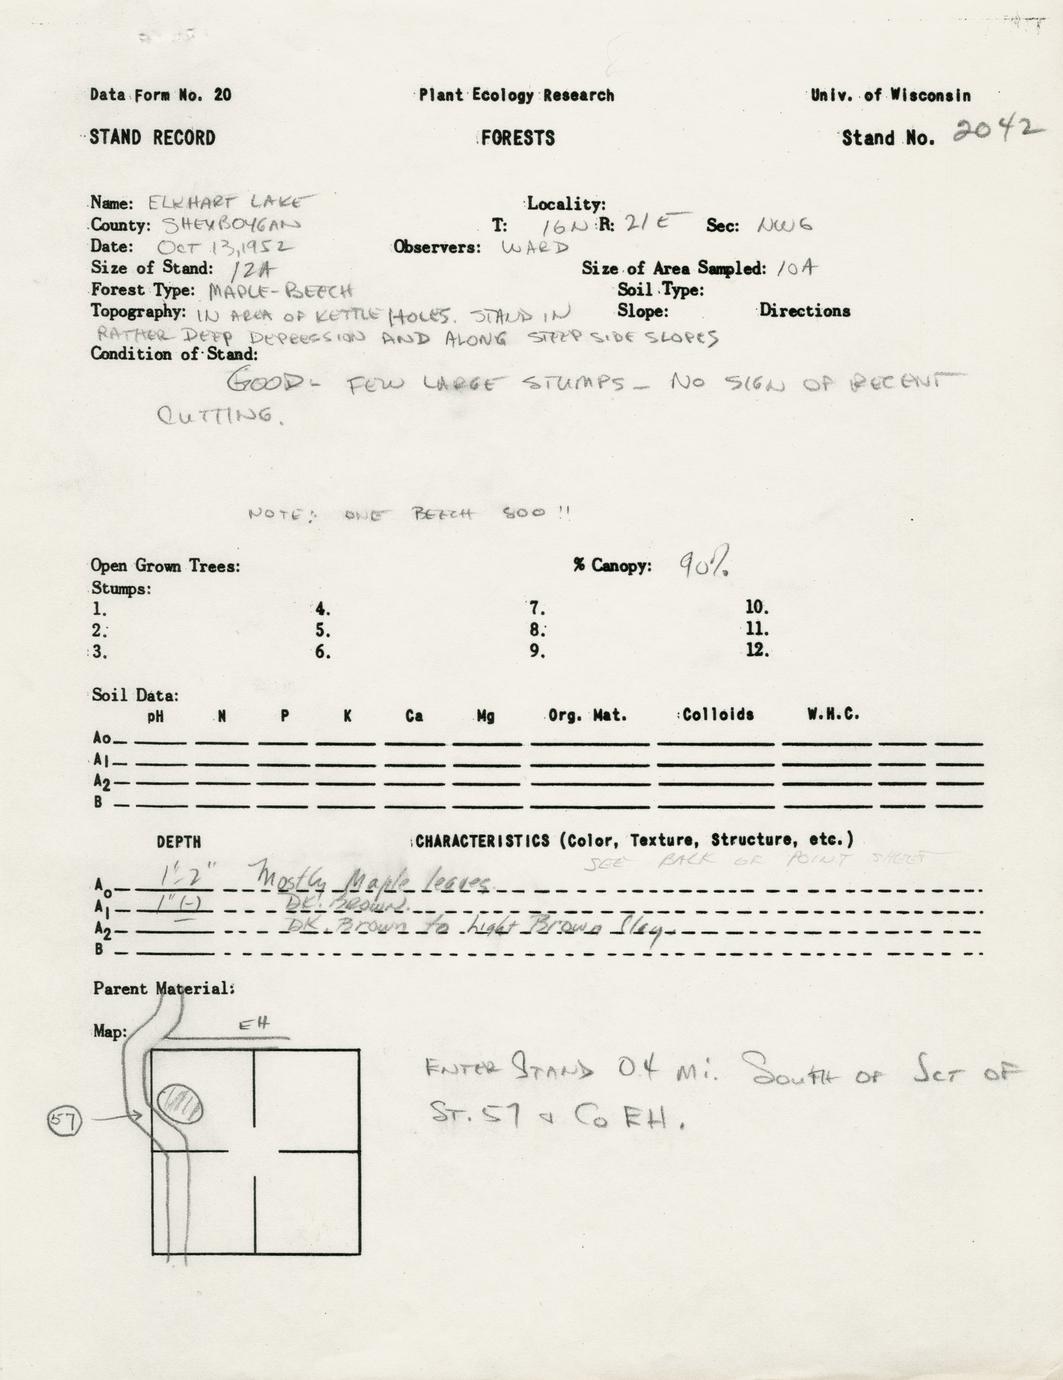 Data Form No. 20 Plant Ecology Research Univ. of Wisconsin
STAND RECORD FORESTS Stand No. 2042
Name: ELKHART LAKE Locality:
County: SHEYBOYGAN T: 16N R: 21E Sec: NW6
Date: OCT 13, 1952 Observers: WARD
Size of Stand: 12A Size of Area Sampled: 10A
Forest Type: MAPLE-BEECH Soil Type:
Topography: IN AREA OF KETTLE HOLES. STAND IN Slope: Directions
RATHER DEEP DEPRESSION AND ALONG STEEP SIDE SLOPES
Condition of Stand:
GOOD - FEW LARGE STUMPS - NO SIGN OF RECENT
CUTTING.
NOTE: ONE BEECH 800 !!
Open Grown Trees: % Canopy: 90%
Stumps:
1. 4. 7. 10.
2. 5. 8. 11.
3. 6. 9. 12.
Soil Data:
pH N P K Ca Mg Org. Mat. Colloids W.H.C.
Ao
A1
A2
B
DEPTH CHARACTERISTICS (Color, Texture, Structure, etc.)
SEE BACK OF POINT SHEET
Ao 1"-2" Mostly Maple leaves
A1 1" (-) DK. Brown.
A2 DK. Brown to Light Brown Slay
B
Parent Material:
Map: EH
ENTER STAND 0.4 Mi. SOUTH OF JCT OF
57 ST. 57 & Co EH.